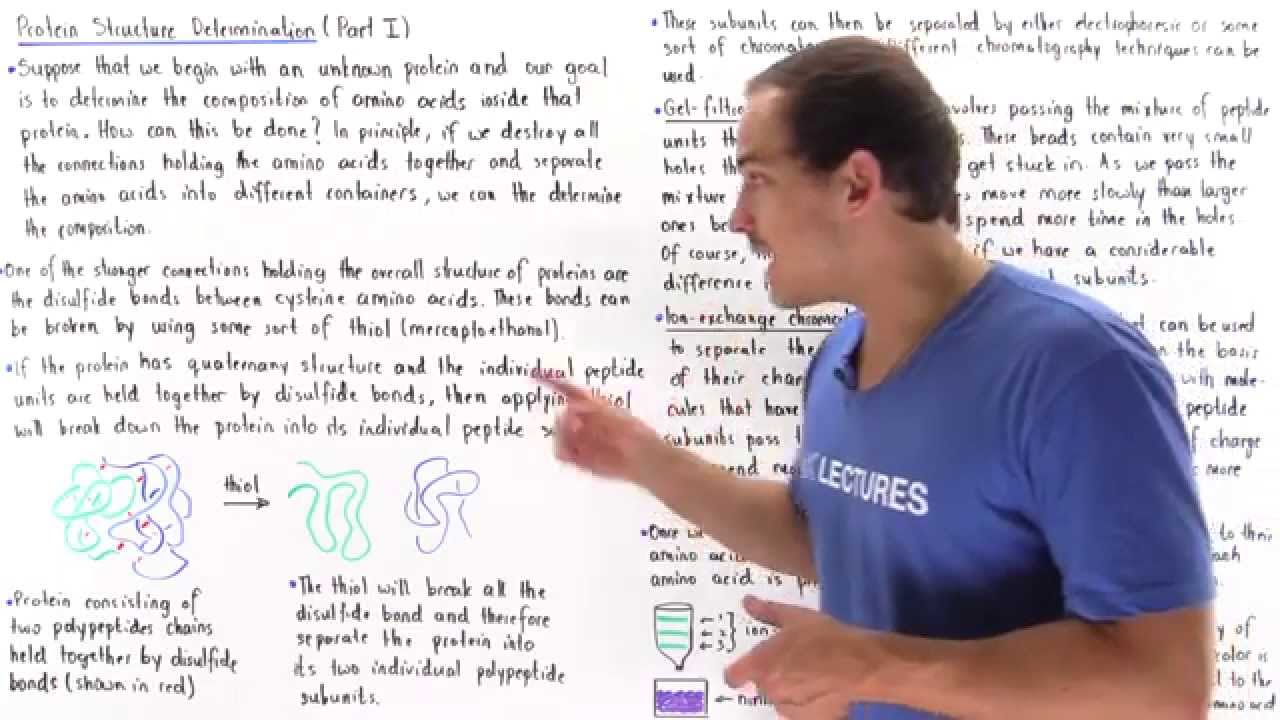 Protein Structure Determination (Part I)
•Suppose that we begin with an unknown protein and our goal
is to determine the composition of amino acids inside that
protein. How can this be done? In principle, if we destroy all
the connections holding the amino acids together and separate
the amino acids into different containers, we can the determine
the composition.
•One of the stronger connections holding the overall structure of proteins are
the disulfide bonds between cysteine amino acids. These bonds can
be broken by using some sort of thiol (mercaptoethanol).
•If the protein has quaternary structure and the individual peptide
units are held together by disulfide bonds, then applying thiol
will break down the protein into its individual peptide
thiol
•Protein consisting of
two polypeptides chains
held together by disulfide
bonds (shown in red)
•The thiol will break all the
disulfide bond and therefore
separate the protein into
its two individual polypeptide
subunits.
•These subunits can then be separated by either electrophoresis or some
sort of different chromatography techniques can be
used.
•Gel-filtr volves passing the mixture of peptide
units th These beads contain very small
holes th get stuck in. As we pass the
mixture move more slowly than larger
ones be spend more time in the holes.
Of course, if we have a considerable
difference subunits.
•Ion-exchange chromat can be used
to separate the on the basis
of their char with mole-
cules that have peptide
subunits pass t of charge
more
•Once we to their
amino aci
amino acid is
←1
←2 } ion
←3
y of
color is
to the
amino acid
← ninh
LECTURES